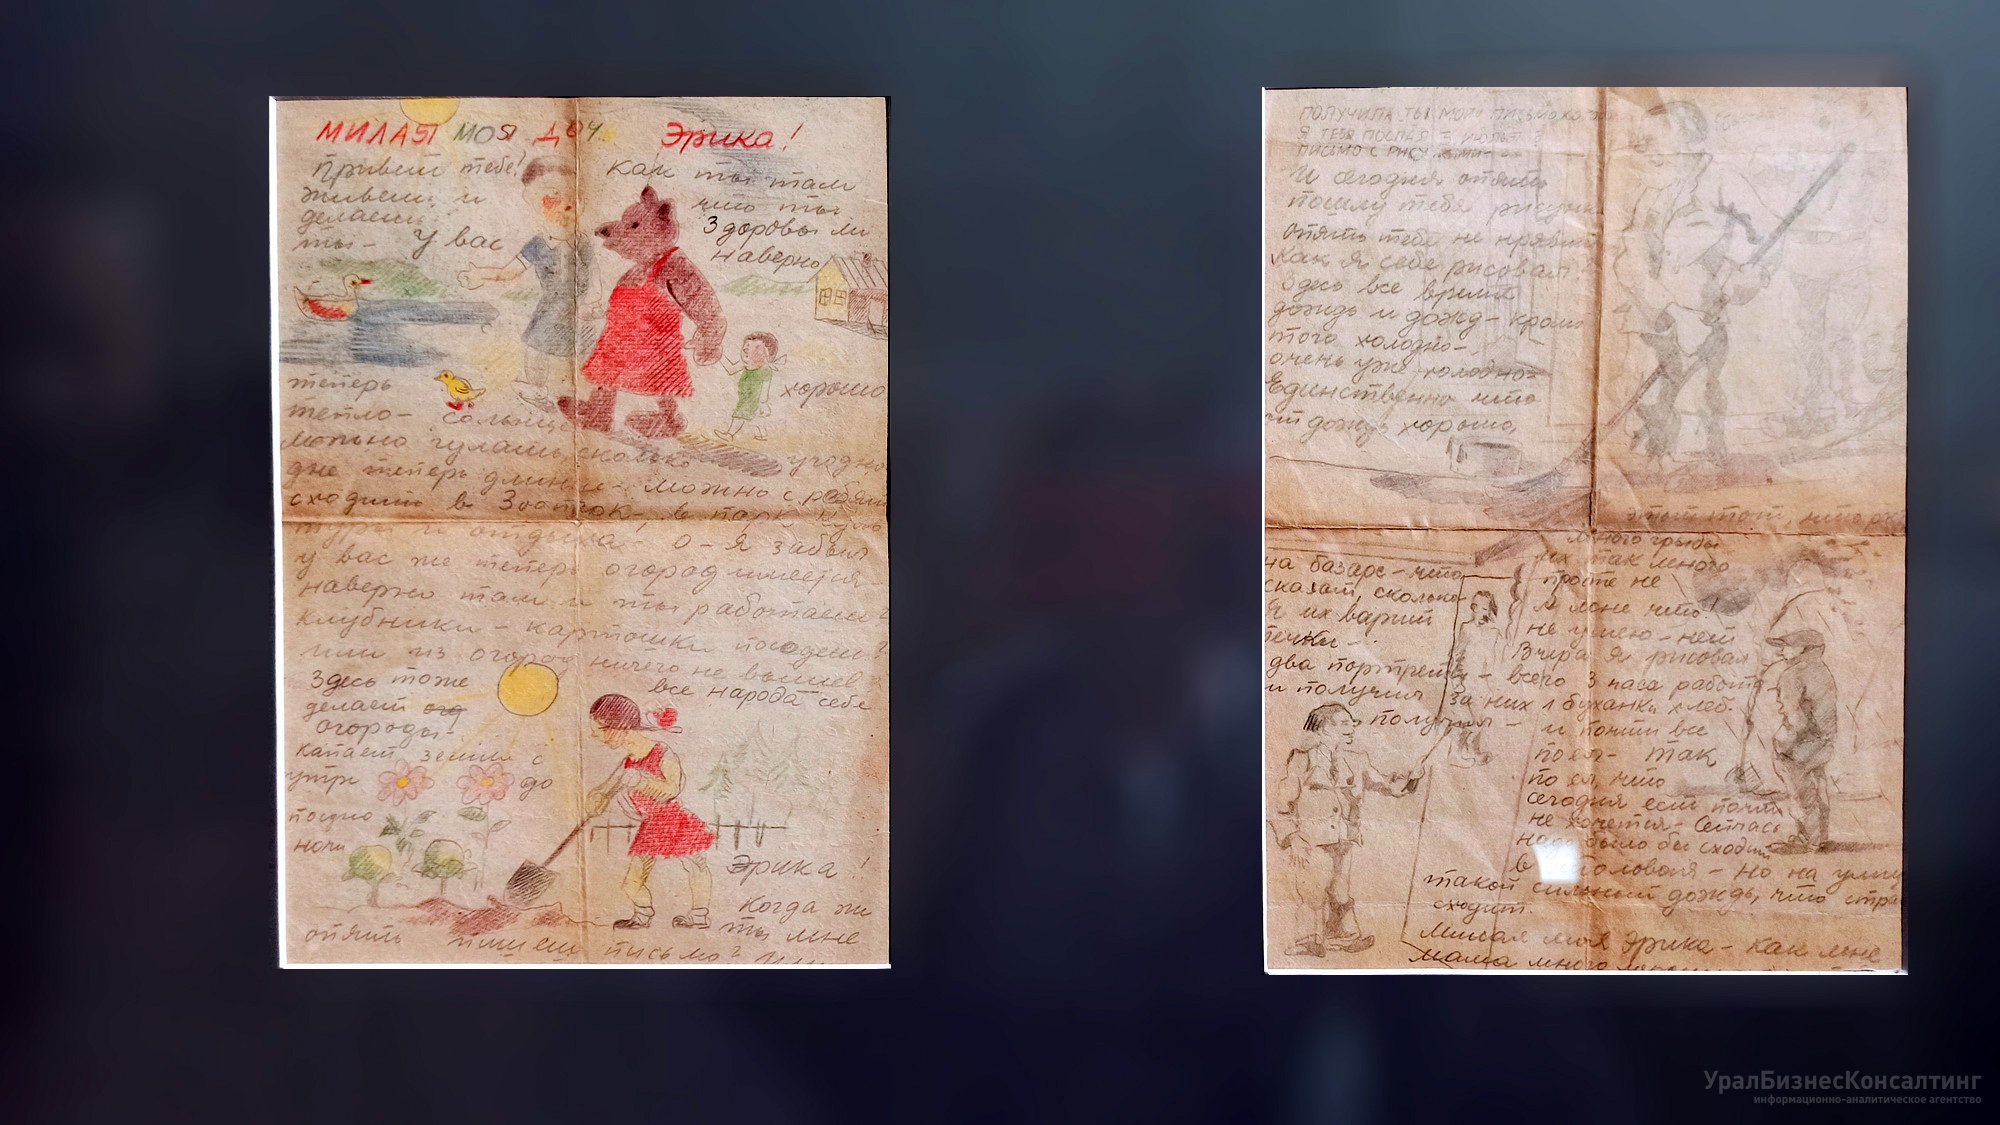 МИЛАЯ МОЯ ДОЧЬ Эрика!
Привет тебе! Как ты там
живеш и что ты
делаеш Здоровы ли
ты - У вас наверно
теперь хорошо
тепло - солнце
можно гулять, сколько угодно
дне теперь длин можно с ребят
сходит в Зоопарк, в парк куль
туры и отдыха - о - я забыл
у вас же теперь огород имеется
наверно там и ты работаеш?
клубники - картошки посодели?
или из огород ничего не вышев
Здесь тоже все народа себе
делает огд
огороды -
капает земли с
утри до
поздно
ночи
Эрика!
Когда же
ты мне
опять пишеш письмо?
ПОЛУЧИЛА ТЫ МОЙО ПИСЬМО КО
Я ТЕБЯ ПОСЛАЛ
ПИСЬМО С РИСУ МИ-
И сегодня опять
пошлу тебя рисунк
опять тебе не нравит
как я себе рисовал?
Здесь все время
дождь и дожд - кроми
того холодно -
очень уже холодно -
Единственно что
дождь хорошо,
этот тот, что
много грибы
на базаре - что их так много
сказат, сколько просто не
Я их варит и мне что!
течки - не умею - нет
Вчера Я рисовал
два портрети - всего 3 часа работ
и получил за них 1 буханки хлеб
получил - и почти все
поел - так
по ел, что
сегодня ест почти
не хочется - Сейчас
надо было бы сходит
в столовая - но на улиц
такой сильный дождь, что стра
сходит.
Милая моя Эрика - как мне
мама много
УралБизнесКонсалтинг
информационно-аналитическое агентство